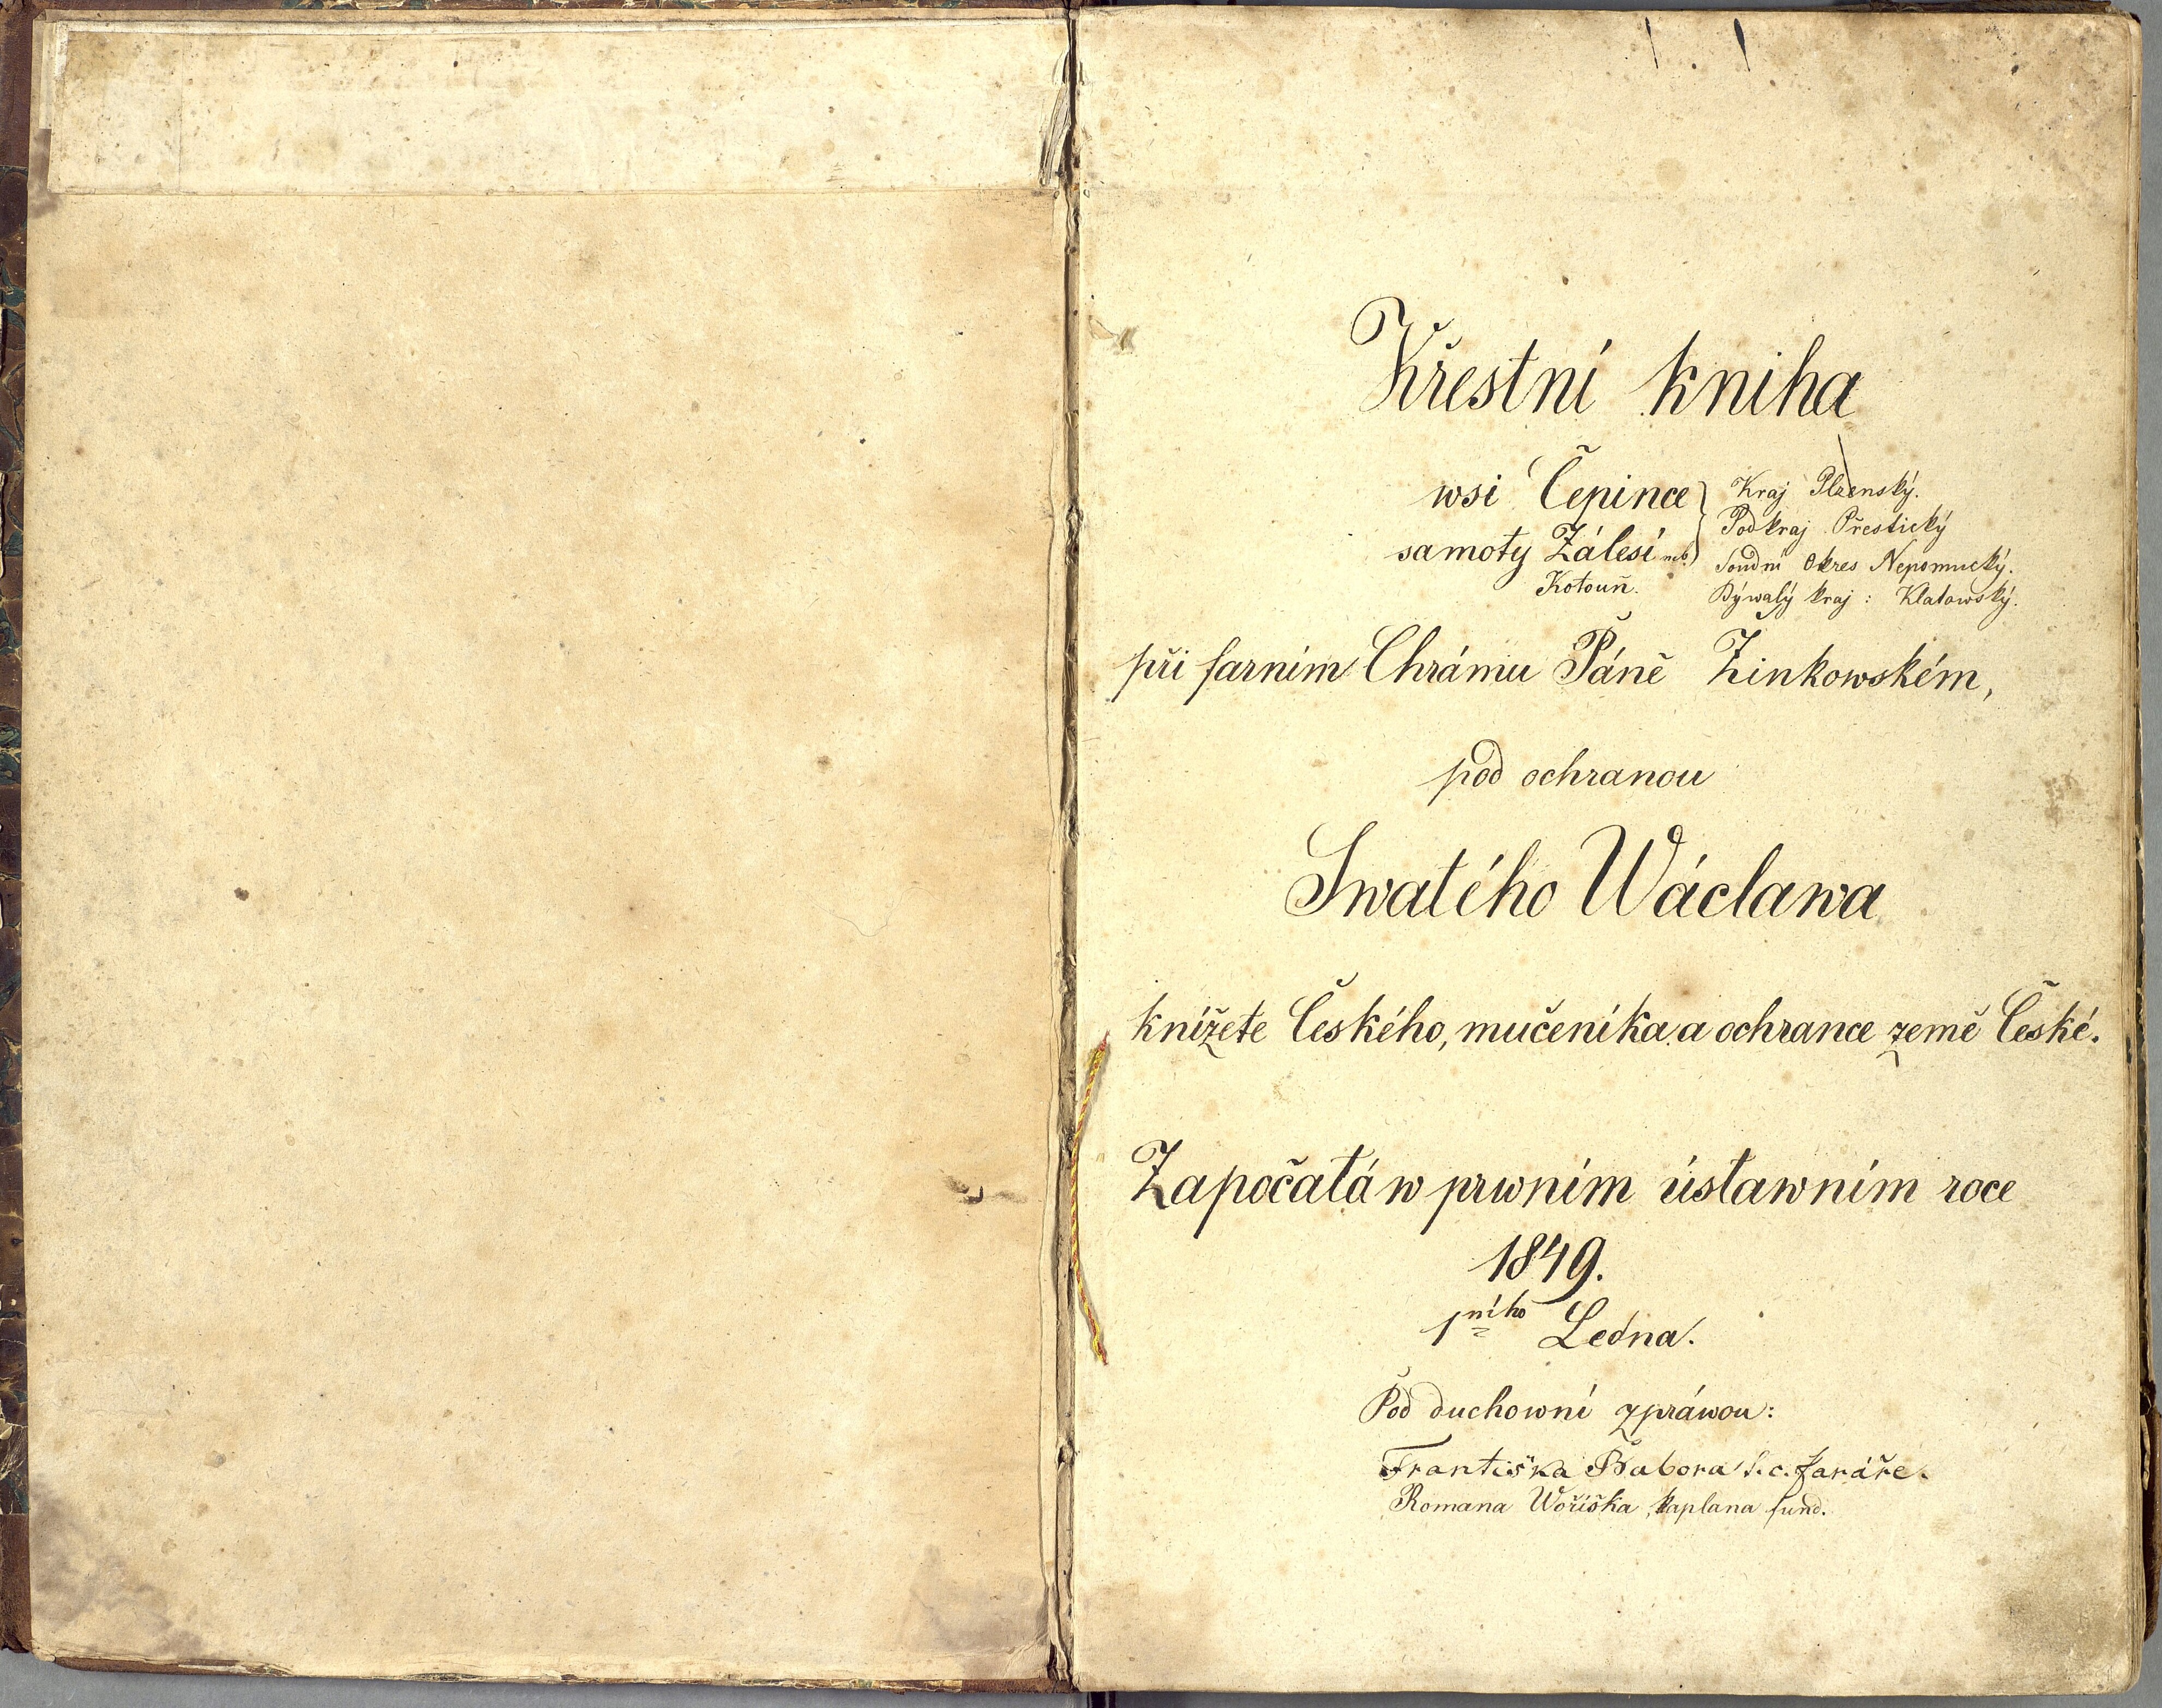 Křestní kniha
wsi Čepince } Kraj Plzenský.
Podkraj Přestický
samoty Zálesí
Soudní Okres Nepomucký.
Kotouň.
Býwalý kraj: Klatowský.
při farním Chrámu Páně Žinkowském,
pod ochranou
Swatého Wáclawa
knížete Českého, mučeníka a ochrance země České.
Započatá w prwním ústawním roce
1849.
1ního Ledna.
Pod duchowní zpráwou:
Františka faráře.
Romana Woříška, kaplana fund.